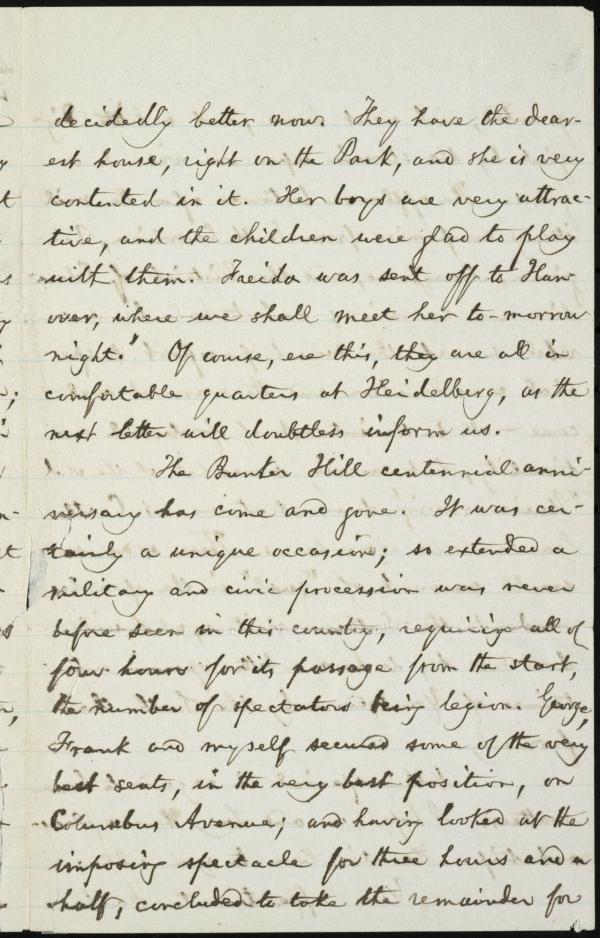 decidedly better now. They have the dear-
est house, right on the Park, and she is very
contented in it. Her boys are very attrac-
tive, and the children were glad to play
with them. Freida was sent off to Han-
over, where we shall meet her to-morrow
night." Of course, ere this, they are all in
comfortable quarters at Heidelberg, as the
next letter will doubtless inform us.
The Bunker Hill centennial anni-
versary has come and gone. It was cer-
tainly a unique occasion; so extended a
military and civic procession was never
before seen in this country, requiring all of
four hours for its passage from the start,
the number of spectators being legion. George,
Frank and myself secured some of the very
best seats, in the very best position, on
Columbus Avenue; and having looked at the
imposing spectacle for three hours and a
half, concluded to take the remainder for